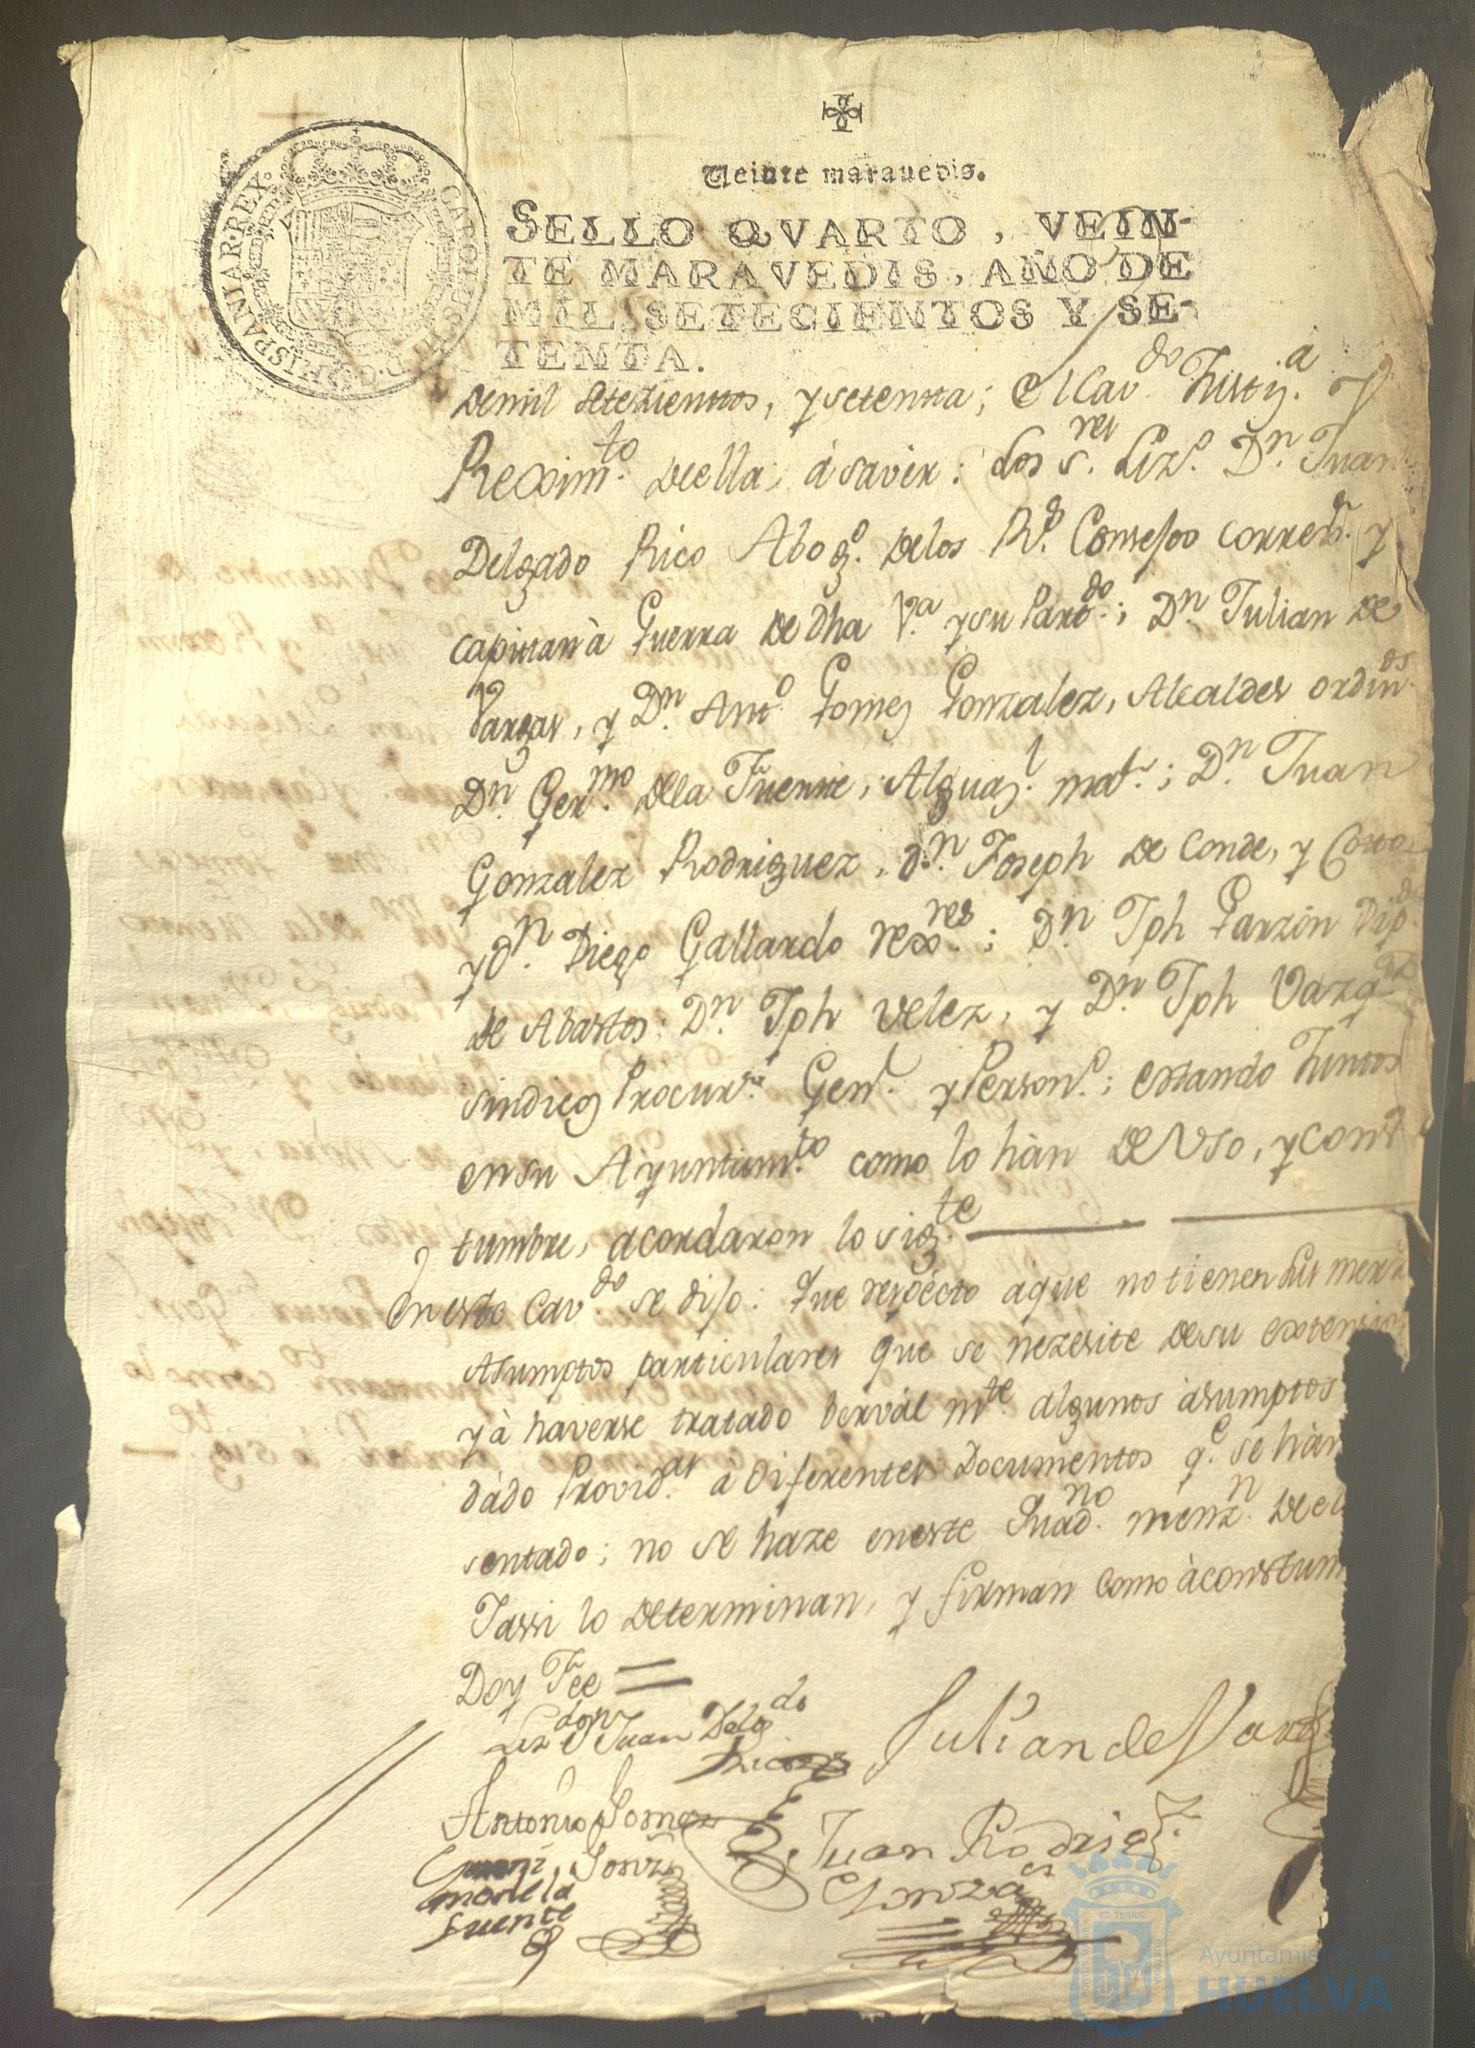 Veinte maravedis.
SELLO QVARTO, VEIN-
TE MARAVEDIS, AÑO DE
MIL SETECIENTOS Y SE-
TENTA.
CAROLUS III D G HISPANIAR REX
de mil setezienttos, y setentta; el Cav.do Justiz.a y
Reximto. de ella, á saver: los s.res Liz.do D.n Juan
Delgado Rico Abog.o de los R.s Consejos corregr. y
capitan à Guerra de dha V.a y su Part.do; D.n Julian de
Vargas, y D.n Ant.o Gomez Gonzalez, Alcaldes ordin.os
D.n Ger.mo de la Fuente, Alguaz.l mar.; D.n Juan
Gonzalez Rodriguez, d.n Joseph de Conde, y
y d.n Diego Gallardo rex.res; D.n Jph Garzin Dip.do
de Abastos; D.n Jph Velez, y D.n Jph Vazq.z
sindicos Procur.s Gen.l y Person.o; estando Juntos
en su Ayuntam.to como lo hàn de Uso, y cons
tumbre, acordaron lo sig.te
En este Cav.do se dijo: Que respecto a que no tienen sus merz.s
Asumptos particulares que se nezesite de su extension
y à haverse tratado bervàl m.te algunos àsumptos
dàdo Provid.as a diferentes Documentos q.e se hàn
sentado; no se haze en este Quad.no menz.n de el
Y assi lo determinan, y firman como àconstum
Doy Fee
Liz.do don Juan Delg.do
Rico
Julian de Varg
Antonio Gomez
Gonz
Juan Rodrig.z
Gonza
Geroni
mo de la
fuente
Ayuntamiento de
HUELVA